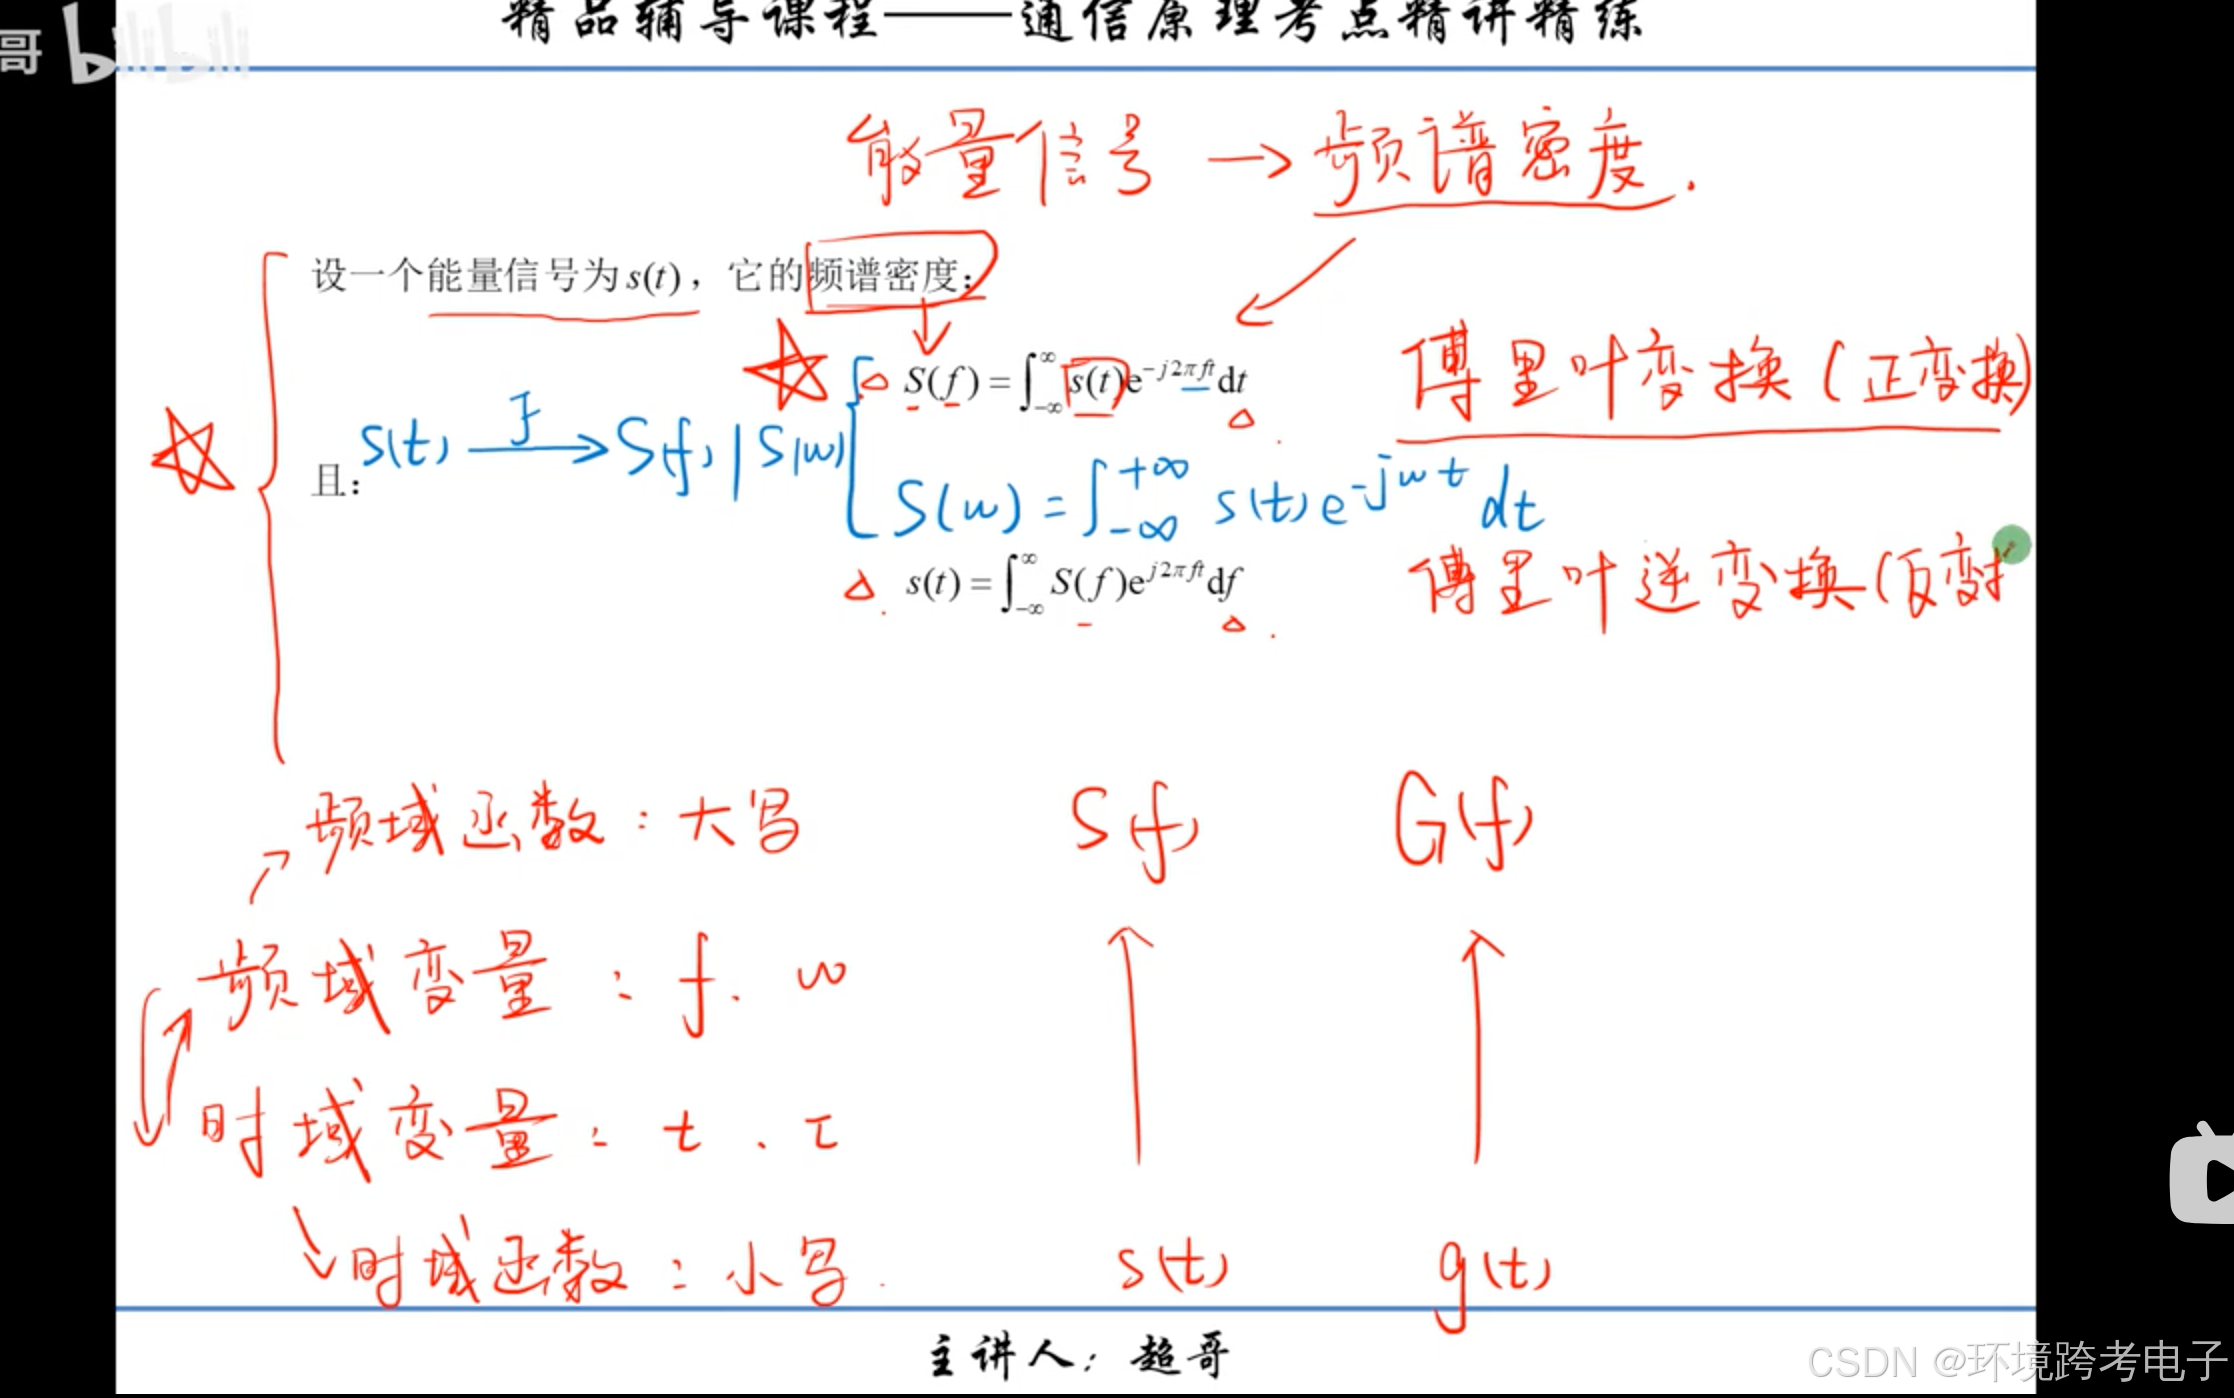 精品辅导课程——通信原理考点精讲精练
哥 bilibili
能量信号 → 频谱密度.
设一个能量信号为s(t)，它的频谱密度：
S(f) = ∫_{-∞}^{∞} s(t)e^{-j2πft}dt
傅里叶变换(正变换)
且：
s(t) —F→ S(f) | S(w)
S(w) = ∫_{-∞}^{+∞} s(t)e^{-jwt}dt
s(t) = ∫_{-∞}^{∞} S(f)e^{j2πft}df
傅里叶逆变换(反变换
频域函数：大写 S(f) G(f)
频域变量：f. w
时域变量：t . τ
时域函数：小写. s(t) g(t)
主讲人：超哥
CSDN @环境跨考电子